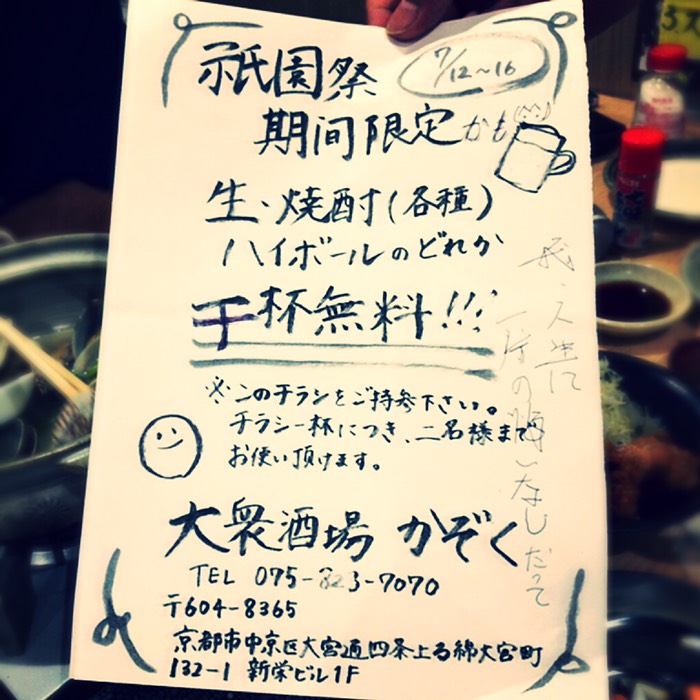 祇園祭 7/12～16
期間限定かも
生・焼酎(各種)
ハイボールのどれか
千杯無料!!!
※このチラシをご持参下さい。
チラシ一杯につき、二名様まで
お使い頂けます。
大衆酒場 かぞく
TEL 075-823-7070
〒604-8365
京都市中京区大宮通四条上る綿大宮町
132-1 新栄ビル1F
我・人生に
一片の悔いなしだって